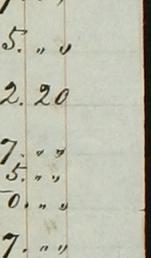 5. „ „
2. 20
7. „ „
5. „ „
0. „ „
7. „ „